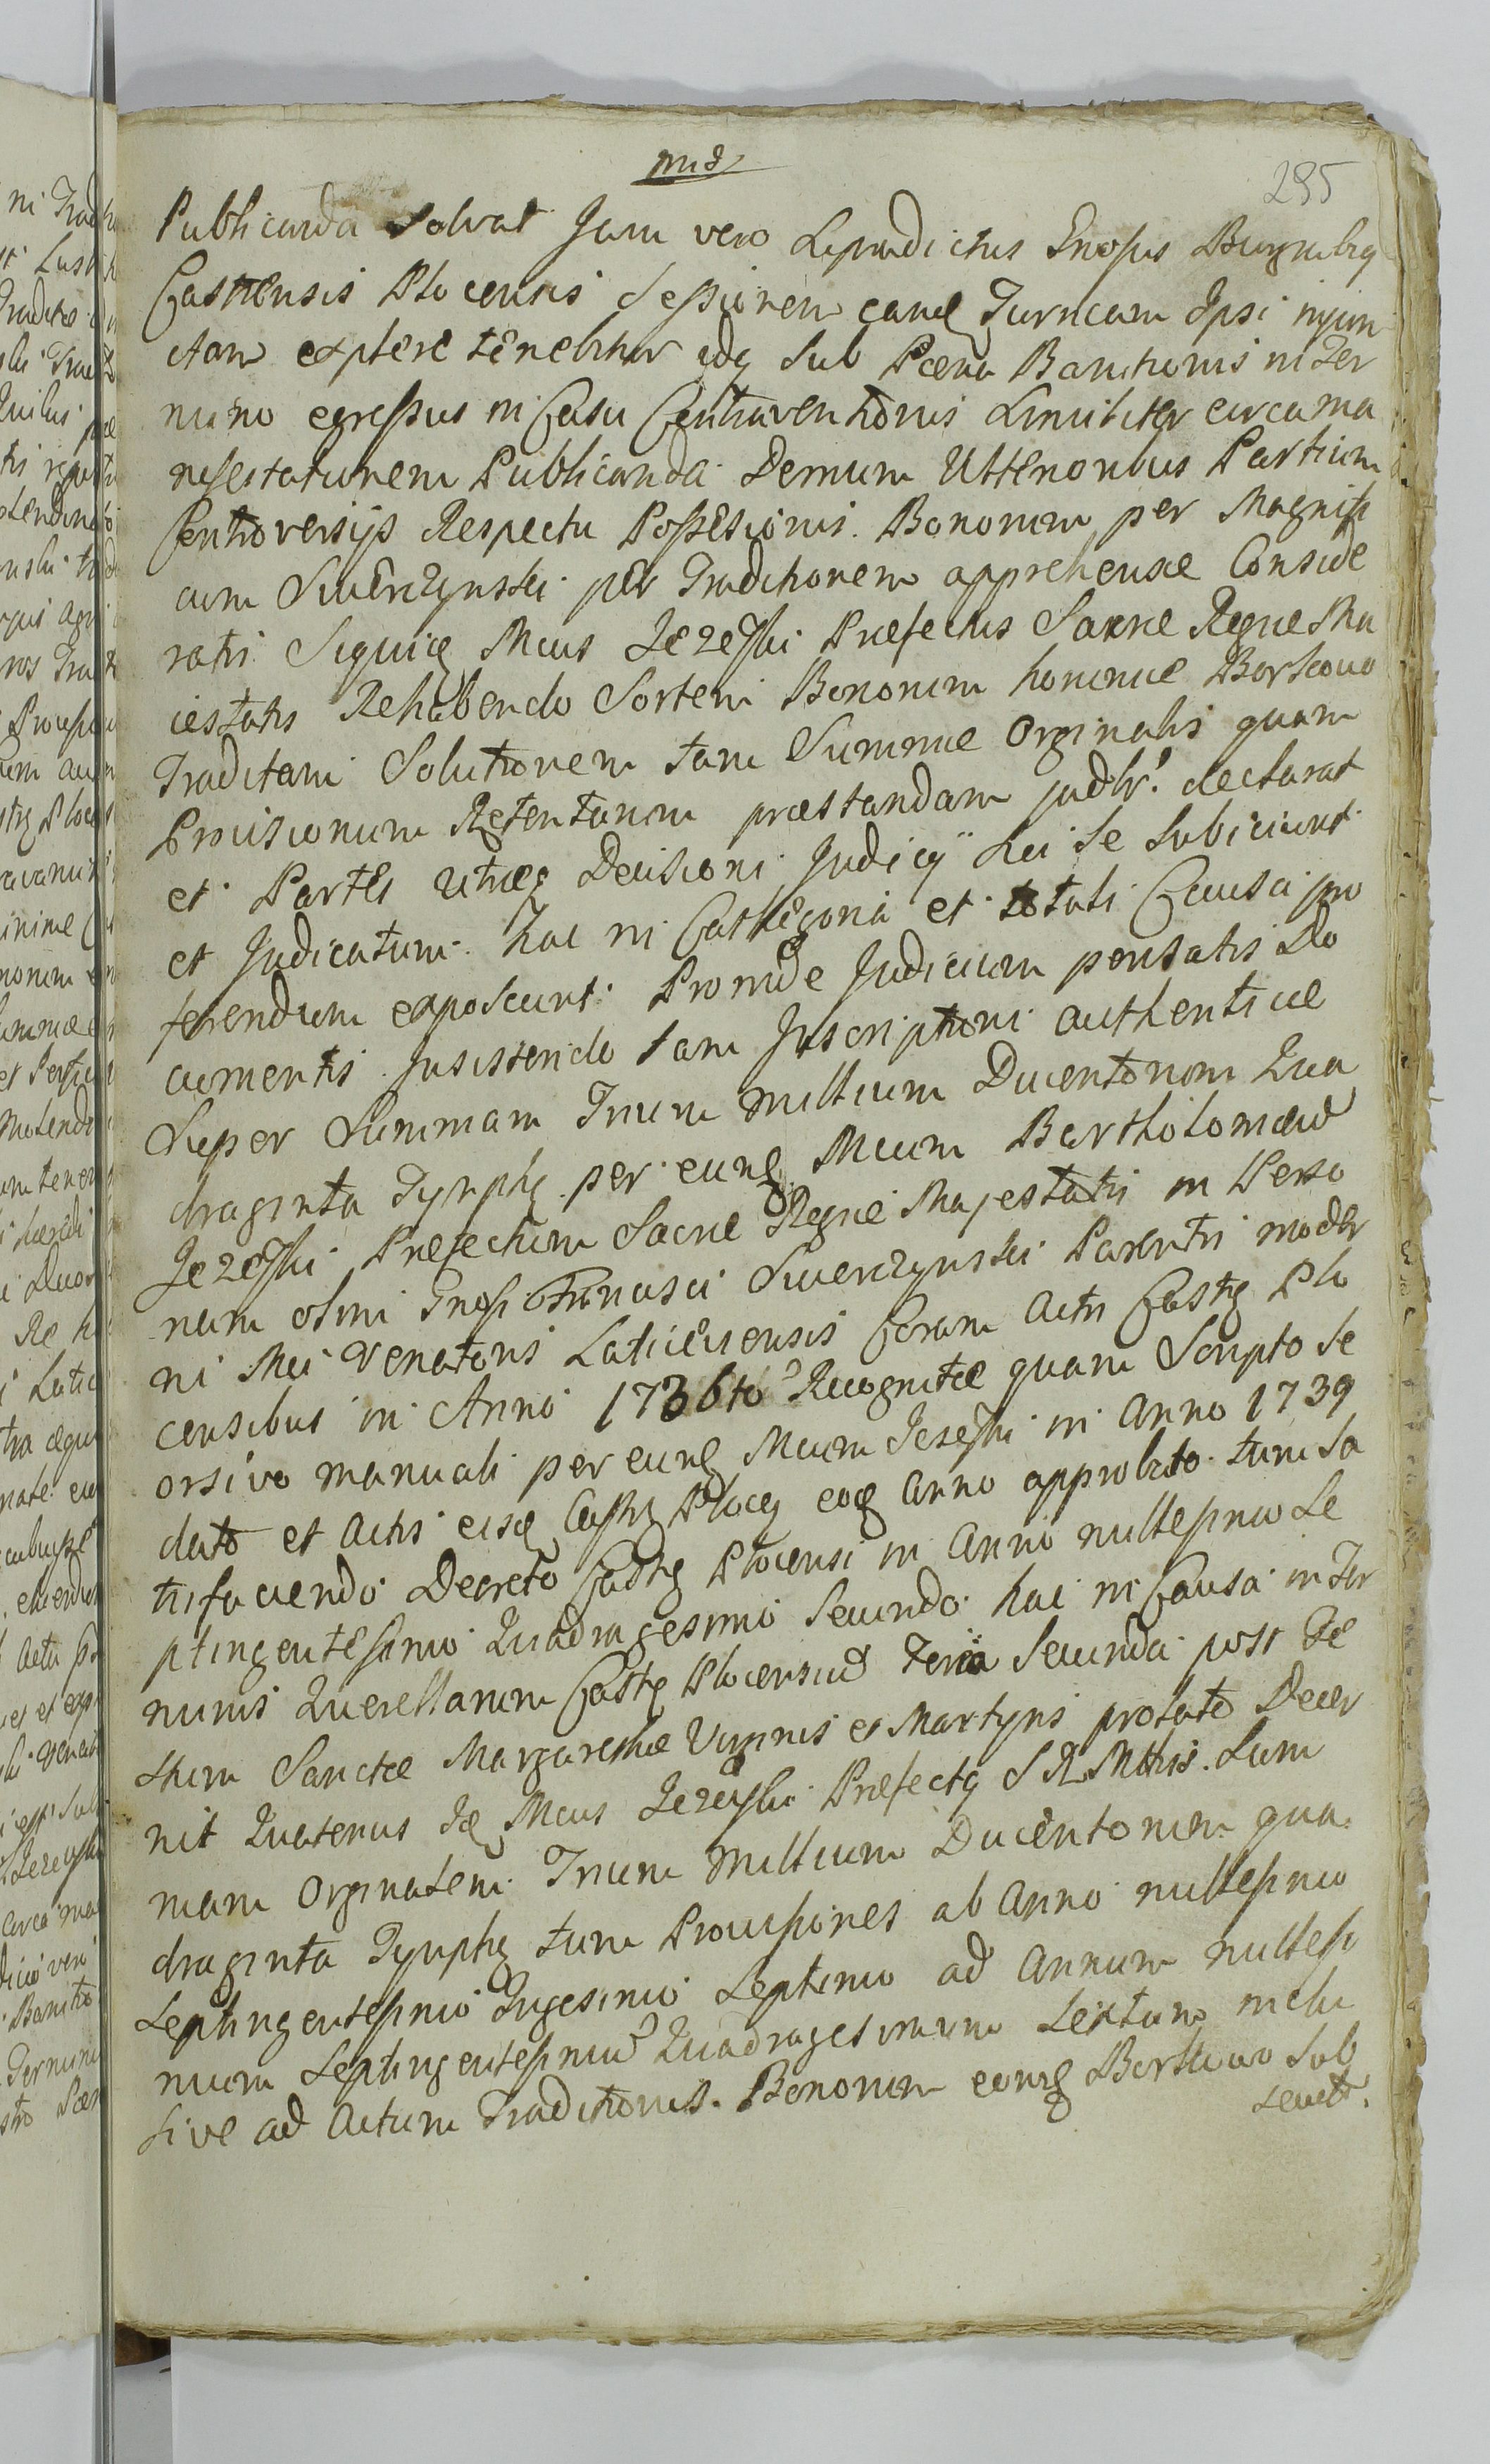 295
Publicanda Solvat Jam vero Supradictus Gnosus Burgrabiq
Castrensis Plocensis Sessionem eandq Turricam Ipsi injun
ctam explere tenebitur idq Sub Pœna Bannitionis in Ter
mino egressus in Casu Contraventionis Similiter circa ma
nifestationem Publicanda Demum Ulterioribus Partium
Controversijs Respectu Possessionis Bonorum per Magnifi
cum Swierczynski per Traditionem apprehensæ Conside
ratis Siquidq Mcus Jezewski Præfectus Sacræ Regiæ Ma
iestatis Rehabendo Sortem Bonorum nominæ Borkowo
Traditam Solutionem tam Summæ Orginalis quam
Provisionum Retentarum præstandam judlr. declarat
et Partes utræq Decisioni Judicÿ Sui Se Subiciunt
et Judicatum hac in Cathegoria et totali Causa pro
ferendum exposcunt Proinde Judicium pensatis Do
cumentis Insistendo tam Inscriptioni authenticæ
Super Summam Trium Millium Ducentorum Qua
draginta Tynphq per eunq Mcum Bartholomæu
Jezewski Præfectum Sacræ Regiæ Majestatis in Perso
nam olim Gnosi Swierczynski Parentis moder
ni Mci Venatoris Laticiensis Coram Actis Castrq Plo
censibus in Anno 1736to Recognitæ quam Scripto Se
orsivo manuali per eunq Mcum Jezewski in Anno 1739
dato et Actis eisq Castrq Plocq eoq Anno approbato tum Sa
tisfaciendo Decreto Castrq Plocensi in Anno millesimo Se
ptingentesimo Quadragesimo Secundo hac in Causa in Ter
minis Querellarum Castrq Plocensiu Feria Secunda post Fe
stum Sanctæ Margarethæ Virginis et Martyris prolato Decer
nit Quatenus Iq Mcus Jezewski Præfectq S R Mttis Sum
mam Orginalem Trium Millium Ducentorum qua
draginta Tynphq tum Provisiones ab Anno millesimo
Septingentesimo Trigesimo Septimo ad Annum millesi
mum Septingentesimu Quadragesimum Sextum inclu
sive ad Actum Traditionis Bonorum eorunq Borkowo Sub